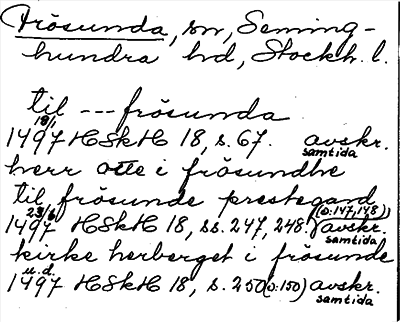 Frösunda, sn, Seming-
hundra hd, Stockh. l.
til --- frösunda
18/1
1497 HSkH 18, s. 67. avskr.
samtida
herr otte i frösundhe
til frösunde prestegard
23/6 (o: 147, 148)
1497 HSkH 18, ss. 247, 248. avskr.
samtida
kirke herberget i frösunde
u.d.
1497 HSkH 18, s. 250 (o: 150) avskr.
samtida